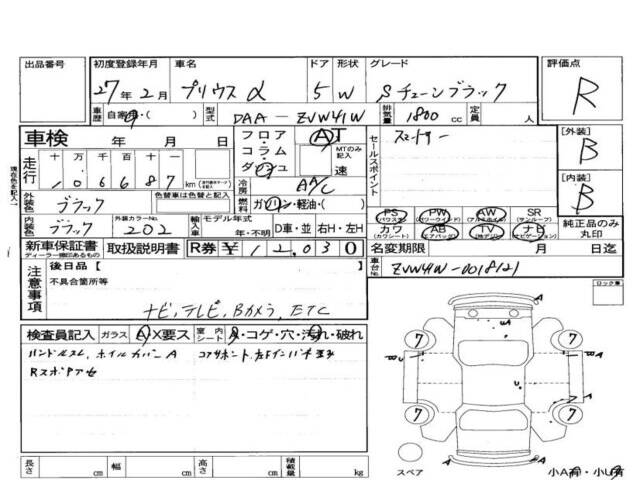 出品番号 初度登録年月 車名 ドア 形状 グレード 評価点
27年2月 プリウス α 5 W Sチューンブラック R
車歴 自家用・( ) 型式 DAA-ZVW41W 排気量 1800 cc 定員 人
車検 年 月 日 フロア AT セールスポイント スマートキー [外装]
B
走行 十万千百十一 コラム MTのみ記入
106687 km ダッシュ 速
冷房 A/C [内装]
B
外装色 ブラック 色替車は色替と記入 燃料 ガソリン・軽油・( )
PS PW AW SR
(パワステ) (パワーウインド) (アルミホイル) (サンルーフ)
内装色 ブラック 外装カラーNo. 202 輸入車 モデル年式 年・不明 D車・並 右H・左H カワ AB TV ナビ 純正品のみ丸印
(カワシート) (エアバッグ) (地デジ) (ナビゲーション)
新車保証書 取扱説明書 R券 ¥12,030 名変期限 月 日迄
ディーラー捺印あるもの
車台No. ZVW41W-0018121
注意事項 後日品【 】
不具合箇所等
ナビ,テレビ,Bカメラ,ETC
検査員記入 ガラス X要ス 室内シート ・コゲ・穴・汚れ・破れ
ハンドルスレ,ホイルカバーA
長さ cm 幅 cm 高さ cm 積載量 kg
現在色を記入
ロック車
A
UA
7 7
BU A
U
7 7
A
スペア 小A有・小U有